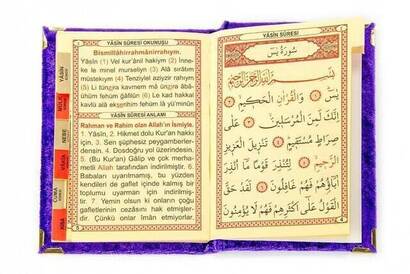 YÂSİN SÛRESİ OKUNUŞU
Bismillâhirrahmânirrahıym.
Yâsîn (1) Vel kur'ânil hakiym (2) İnne-
ke le minel murseliyn (3) Alâ sırâtım
müstekıym (4) Tenziylel azizir rahıym
(5) Li tünzira kavmem mâ ünzira âbâ-
ühüm fehüm ğâfilün (6) Le kad hakkal
kavlü alâ ekserihim fehüm lâ yü'minûn
YÂSİN SÛRESİ ANLAMI
Rahman ve Rahim olan Allah'ın ismiyle.
1. Yâsîn, 2. Hikmet dolu Kur'an hakkı
için, 3. Sen şüphesiz peygamberler-
densin. 4. Dosdoğru yol üzerindesin.
5. (Bu Kur'an) Gâlip ve çok merha-
metli Allah tarafından indirilmiştir. 6.
Babaları uyarılmamış, bu yüzden
kendileri de gaflet içinde kalmış bir
toplumu uyarman için indirilmiş-
tir. 7 Yemin olsun ki onların çoğu
gafletlerinin cezasını hak etmişler-
dir. Çünkü onlar îmân etmiyorlar.
YÂSİN
MÜLK
NEBE
VÂKIA
CUMA
سُورَةُ يٰسٓ
بِسْمِ اللّٰهِ الرَّحْمٰنِ الرَّحِيمِ
يٰسٓ ﴿١﴾ وَالْقُرْاٰنِ الْحَكِيمِ ﴿٢﴾
اِنَّكَ لَمِنَ الْمُرْسَلِينَ ﴿٣﴾ عَلٰى
صِرَاطٍ مُسْتَقِيمٍ ﴿٤﴾ تَنْزِيلَ الْعَزِيزِ
الرَّحِيمِ ﴿٥﴾ لِتُنْذِرَ قَوْمًا مَا اُنْذِرَ
اٰبَاؤُهُمْ فَهُمْ غَافِلُونَ ﴿٦﴾ لَقَدْ حَقَّ
الْقَوْلُ عَلٰى اَكْثَرِهِمْ فَهُمْ لَا يُؤْمِنُونَ